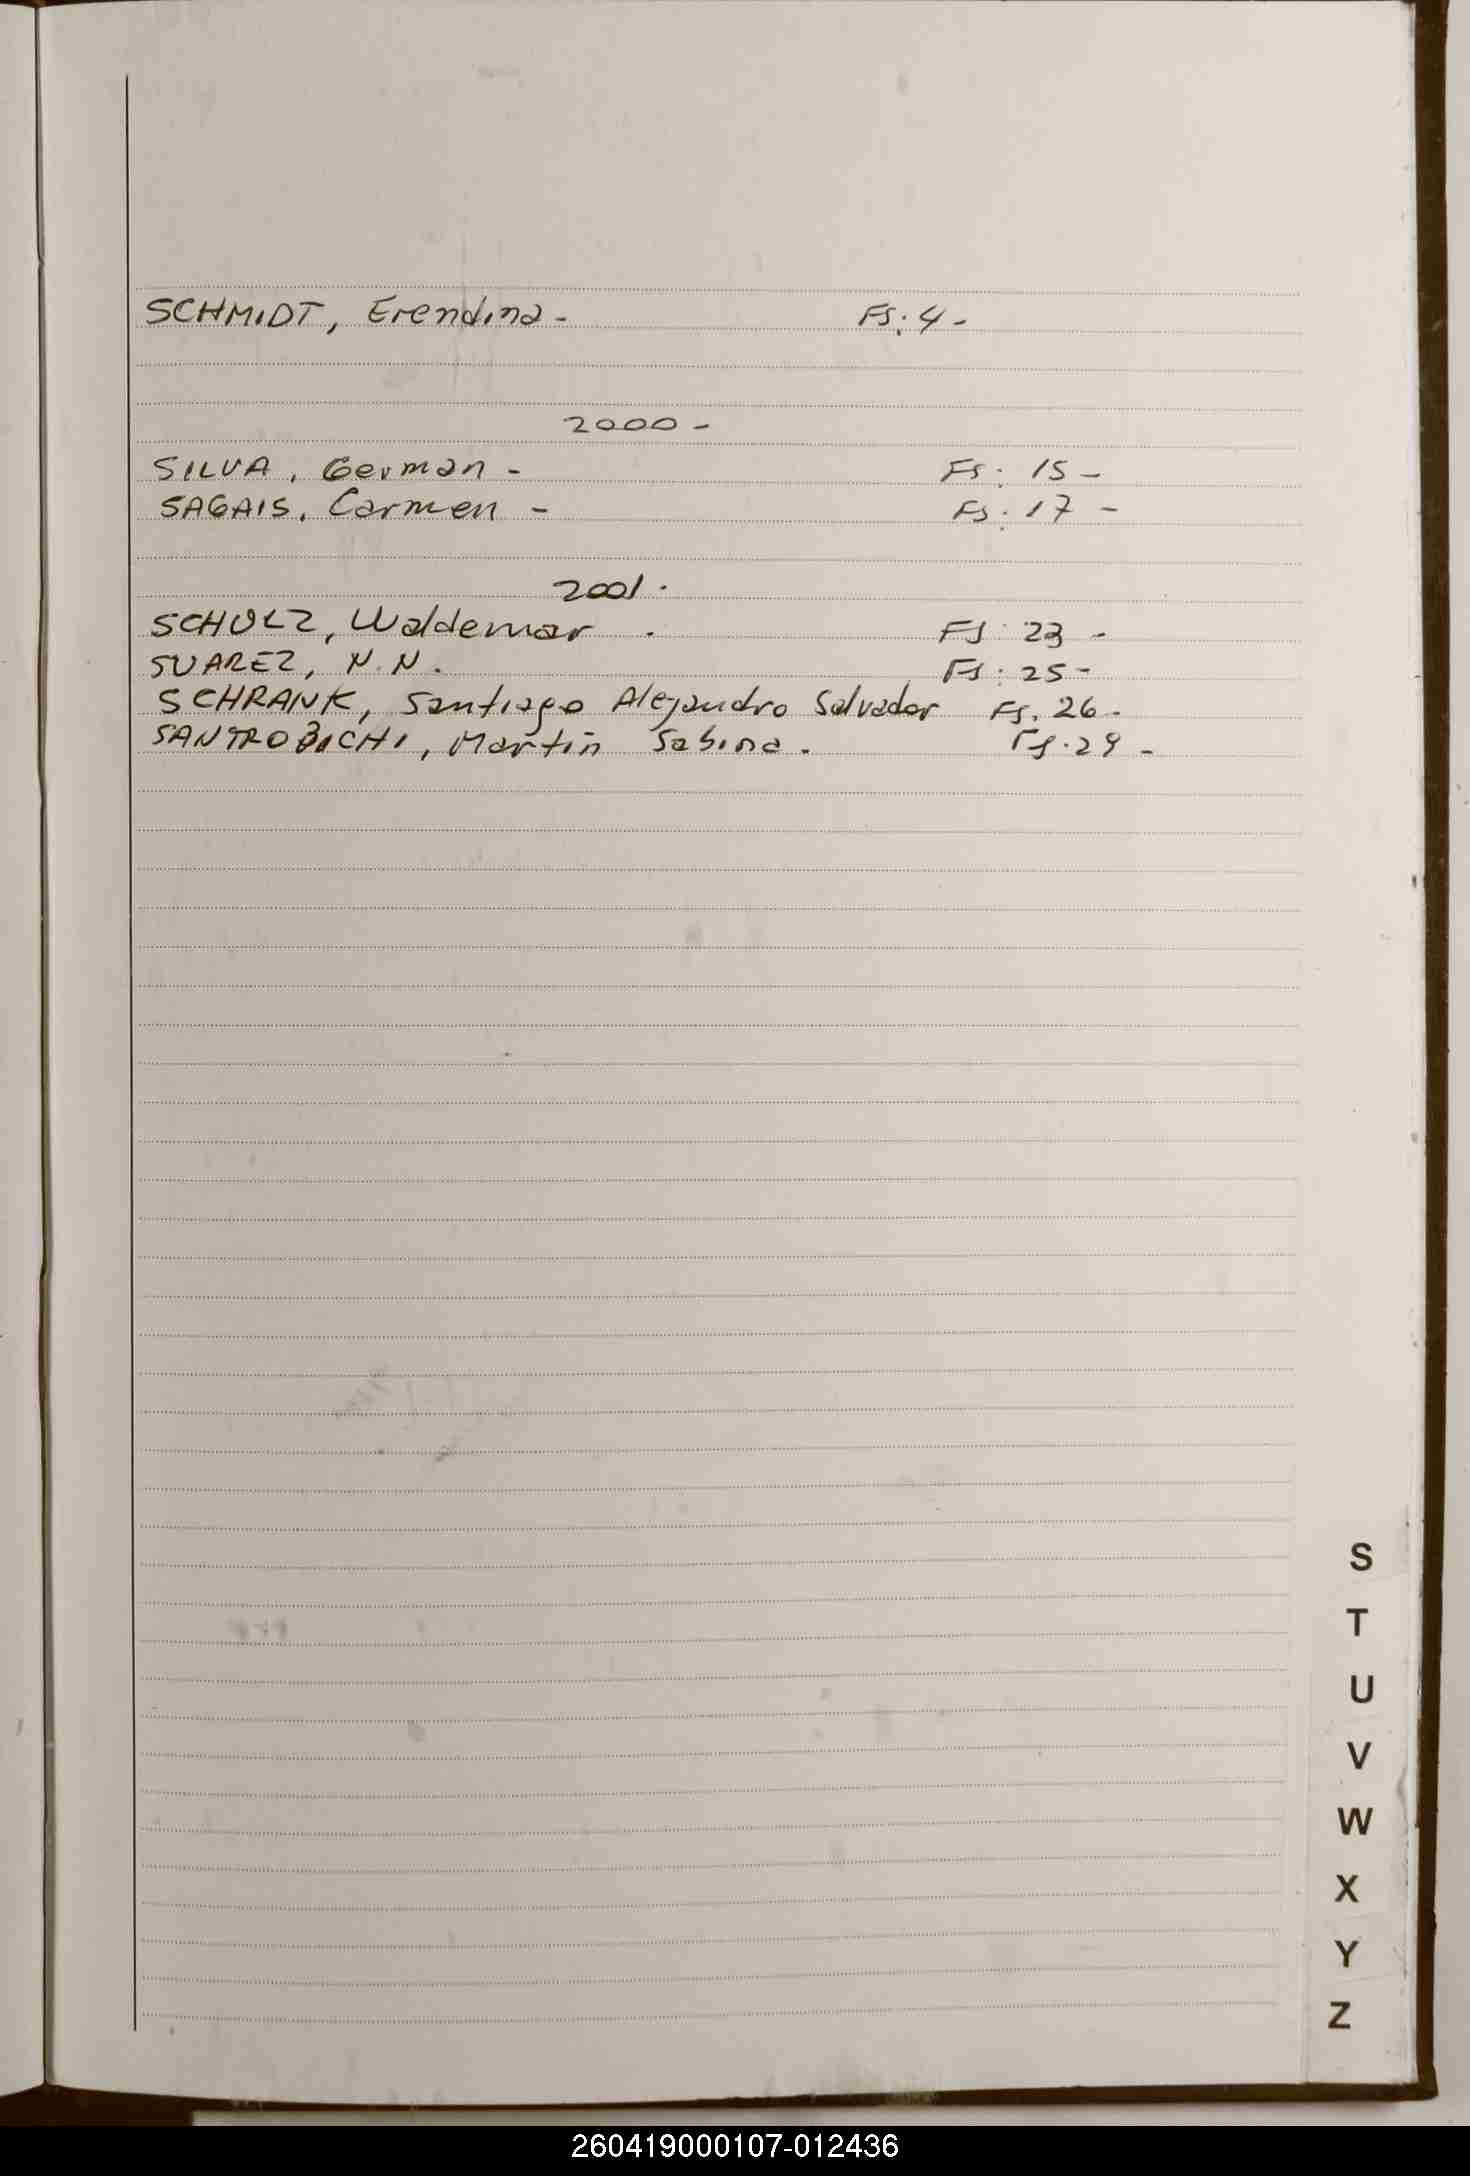 SCHMIDT, Erendina - Fs: 4 -
2000 -
SILVA, German - Fs: 15 -
SAGAIS, Carmen - Fs: 17 -
2001.
SCHOLZ, Waldemar . Fs: 23 -
SUAREZ, N.N. Fs: 25 -
SCHRANK, Santiago Alejandro Salvador Fs. 26 -
SANTROBICHI, Martin Sabino . Fs. 29 -
S
T
U
V
W
X
Y
Z
260419000107-012436